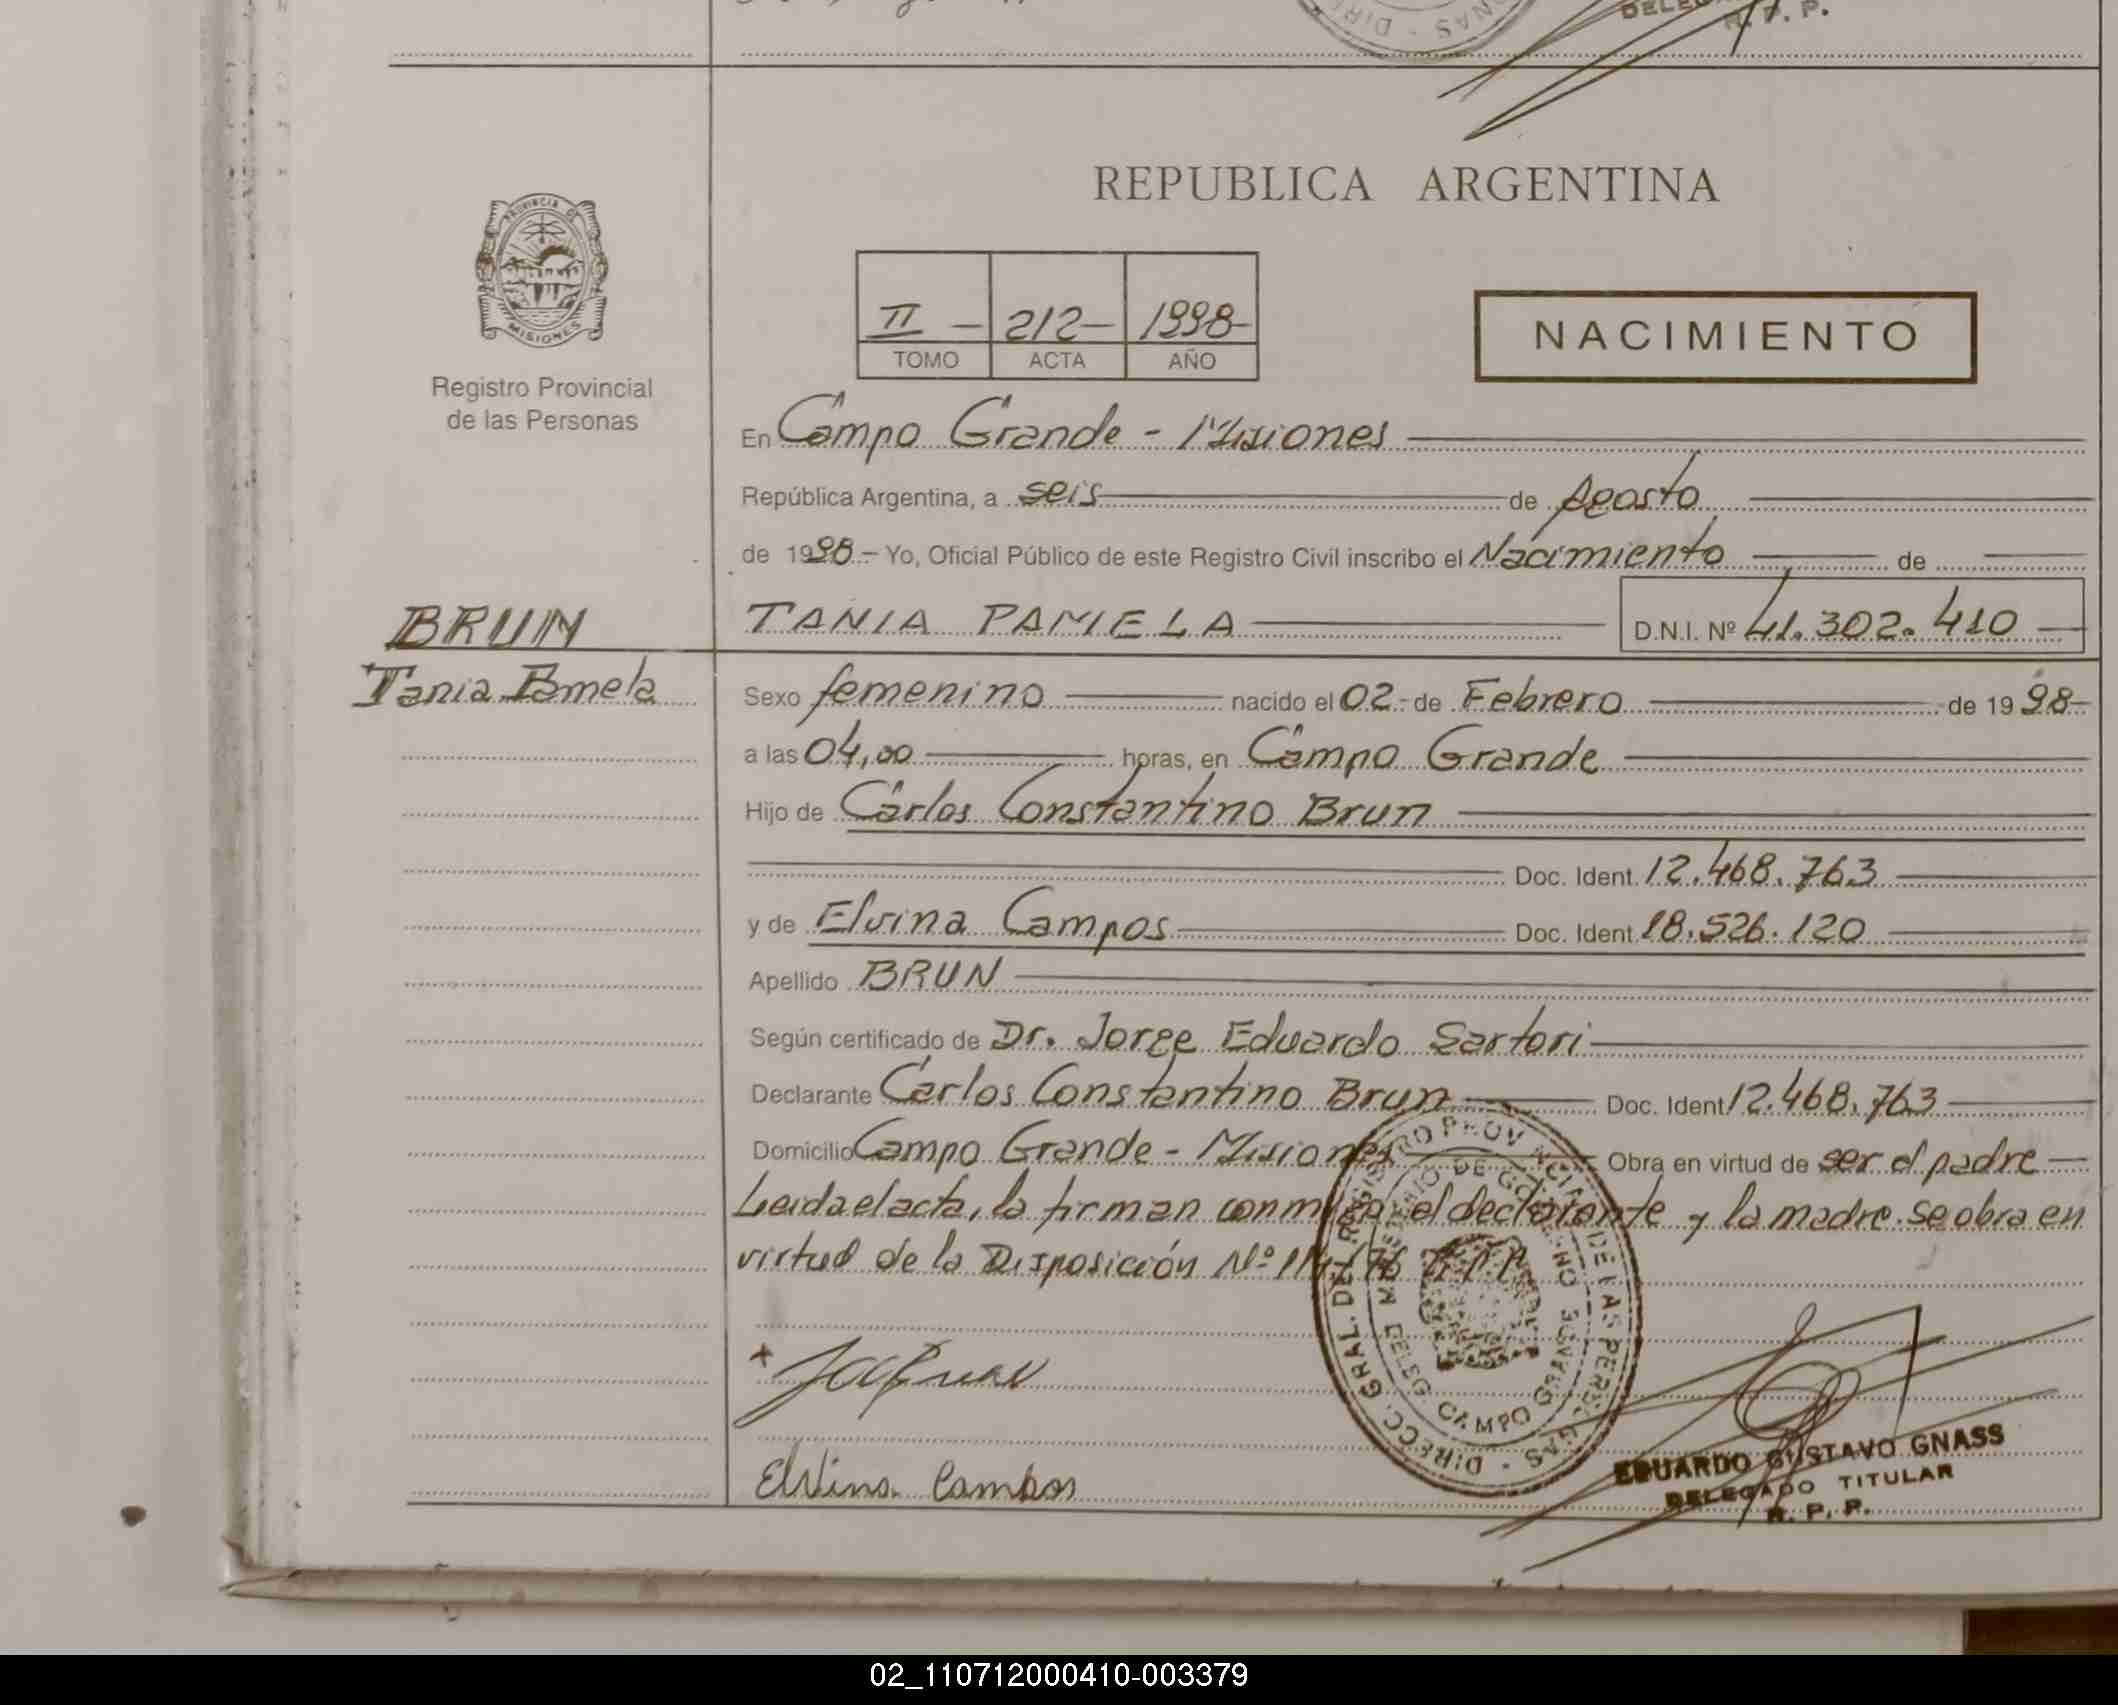 DELEG
R. P. P.
REPUBLICA ARGENTINA
PROVINCIA DE
MISIONES
Registro Provincial
de las Personas
II - 212- 1998-
TOMO ACTA AÑO
NACIMIENTO
En Campo Grande - Misiones
República Argentina, a seis de Agosto
de 1998.- Yo, Oficial Público de este Registro Civil inscribo el Nacimiento de
BRUN TANIA PAMELA D.N.I. Nº 41.302.410
Tania Pamela
Sexo femenino nacido el 02- de Febrero de 1998-
a las 04,00 horas, en Campo Grande
Hijo de Carlos Constantino Brun
Doc. Ident. 12.468.763
y de Elvina Campos Doc. Ident. 18.526.120
Apellido BRUN
Según certificado de Dr. Jorge Eduardo Sartori
Declarante Carlos Constantino Brun Doc. Ident 12.468.763
Domicilio Campo Grande - Misiones Obra en virtud de ser el padre
Leida el acta, la firman conmigo el declarante y la madre. Se obra en
virtud de la Disposición Nº
DIRECC. GRAL. DEL REGISTRO PROVINCIAL DE LAS PERSONAS
MINISTERIO DE GOBIERNO
DELEG. CAMPO GRANDE
Elvina Campos
EDUARDO GUSTAVO GNASS
DELEGADO TITULAR
R. P. P.
02_110712000410-003379